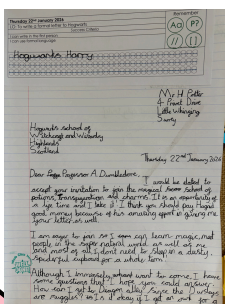 Thursday 22nd January 2026
LO: to write a formal letter to Hogwarts
Success Criteria
I can write in the first person
I can use formal language
Remember
Aa P?
// []
Hogwarts Harry
Mr H Potter
4 Privet Drive
Little Whinging
Surry
Hogwarts school of
Witchcraft and Wizardry
Highlands
Scotland
Thursday 22nd January 2026
Dear Professor A. Dumbledore,
I would be delited to
accept your invitation to join the magical school of
potions, transfiguration and charms. It is an oppertunity of
a life time and I take it. I think you should pay Hagrid
good money because of his amazing effort in giving me
your letter as well.
I am eager to join so I can learn magic, met
people in the super natural world as well as me
and most of all I dont need to sleep in a dusty,
spiderful cupboard for a whole term.
Although I immensely want to come, I have
some questions that I hope you could answer.
How can I get to Diagon alley since the
are muggles? Is it okay if I get an owl for